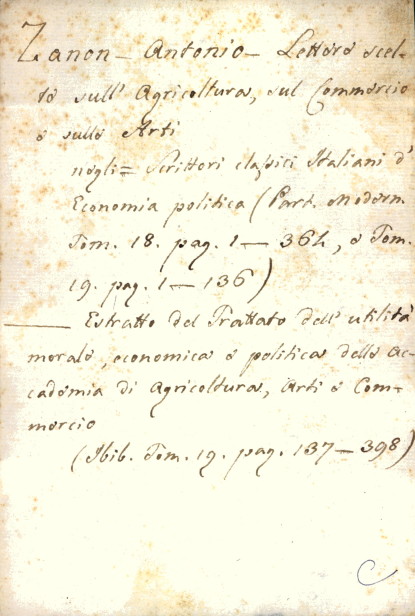 Zanon - Antonio - Lettere scel-
te sull' Agricoltura, sul Commercio
e sulle Arti
negli = Scrittori classici Italiani d'
Economia politica (Part. Modern.
Tom. 18. pag. 1 — 364, e Tom.
19. pag. 1 — 136)
—— Estratto del Trattato dell' utilità
morale, economica e politica delle Ac-
cademia di Agricoltura, Arti e Com-
mercio
(Ibib. Tom. 19. pag. 137 — 398)